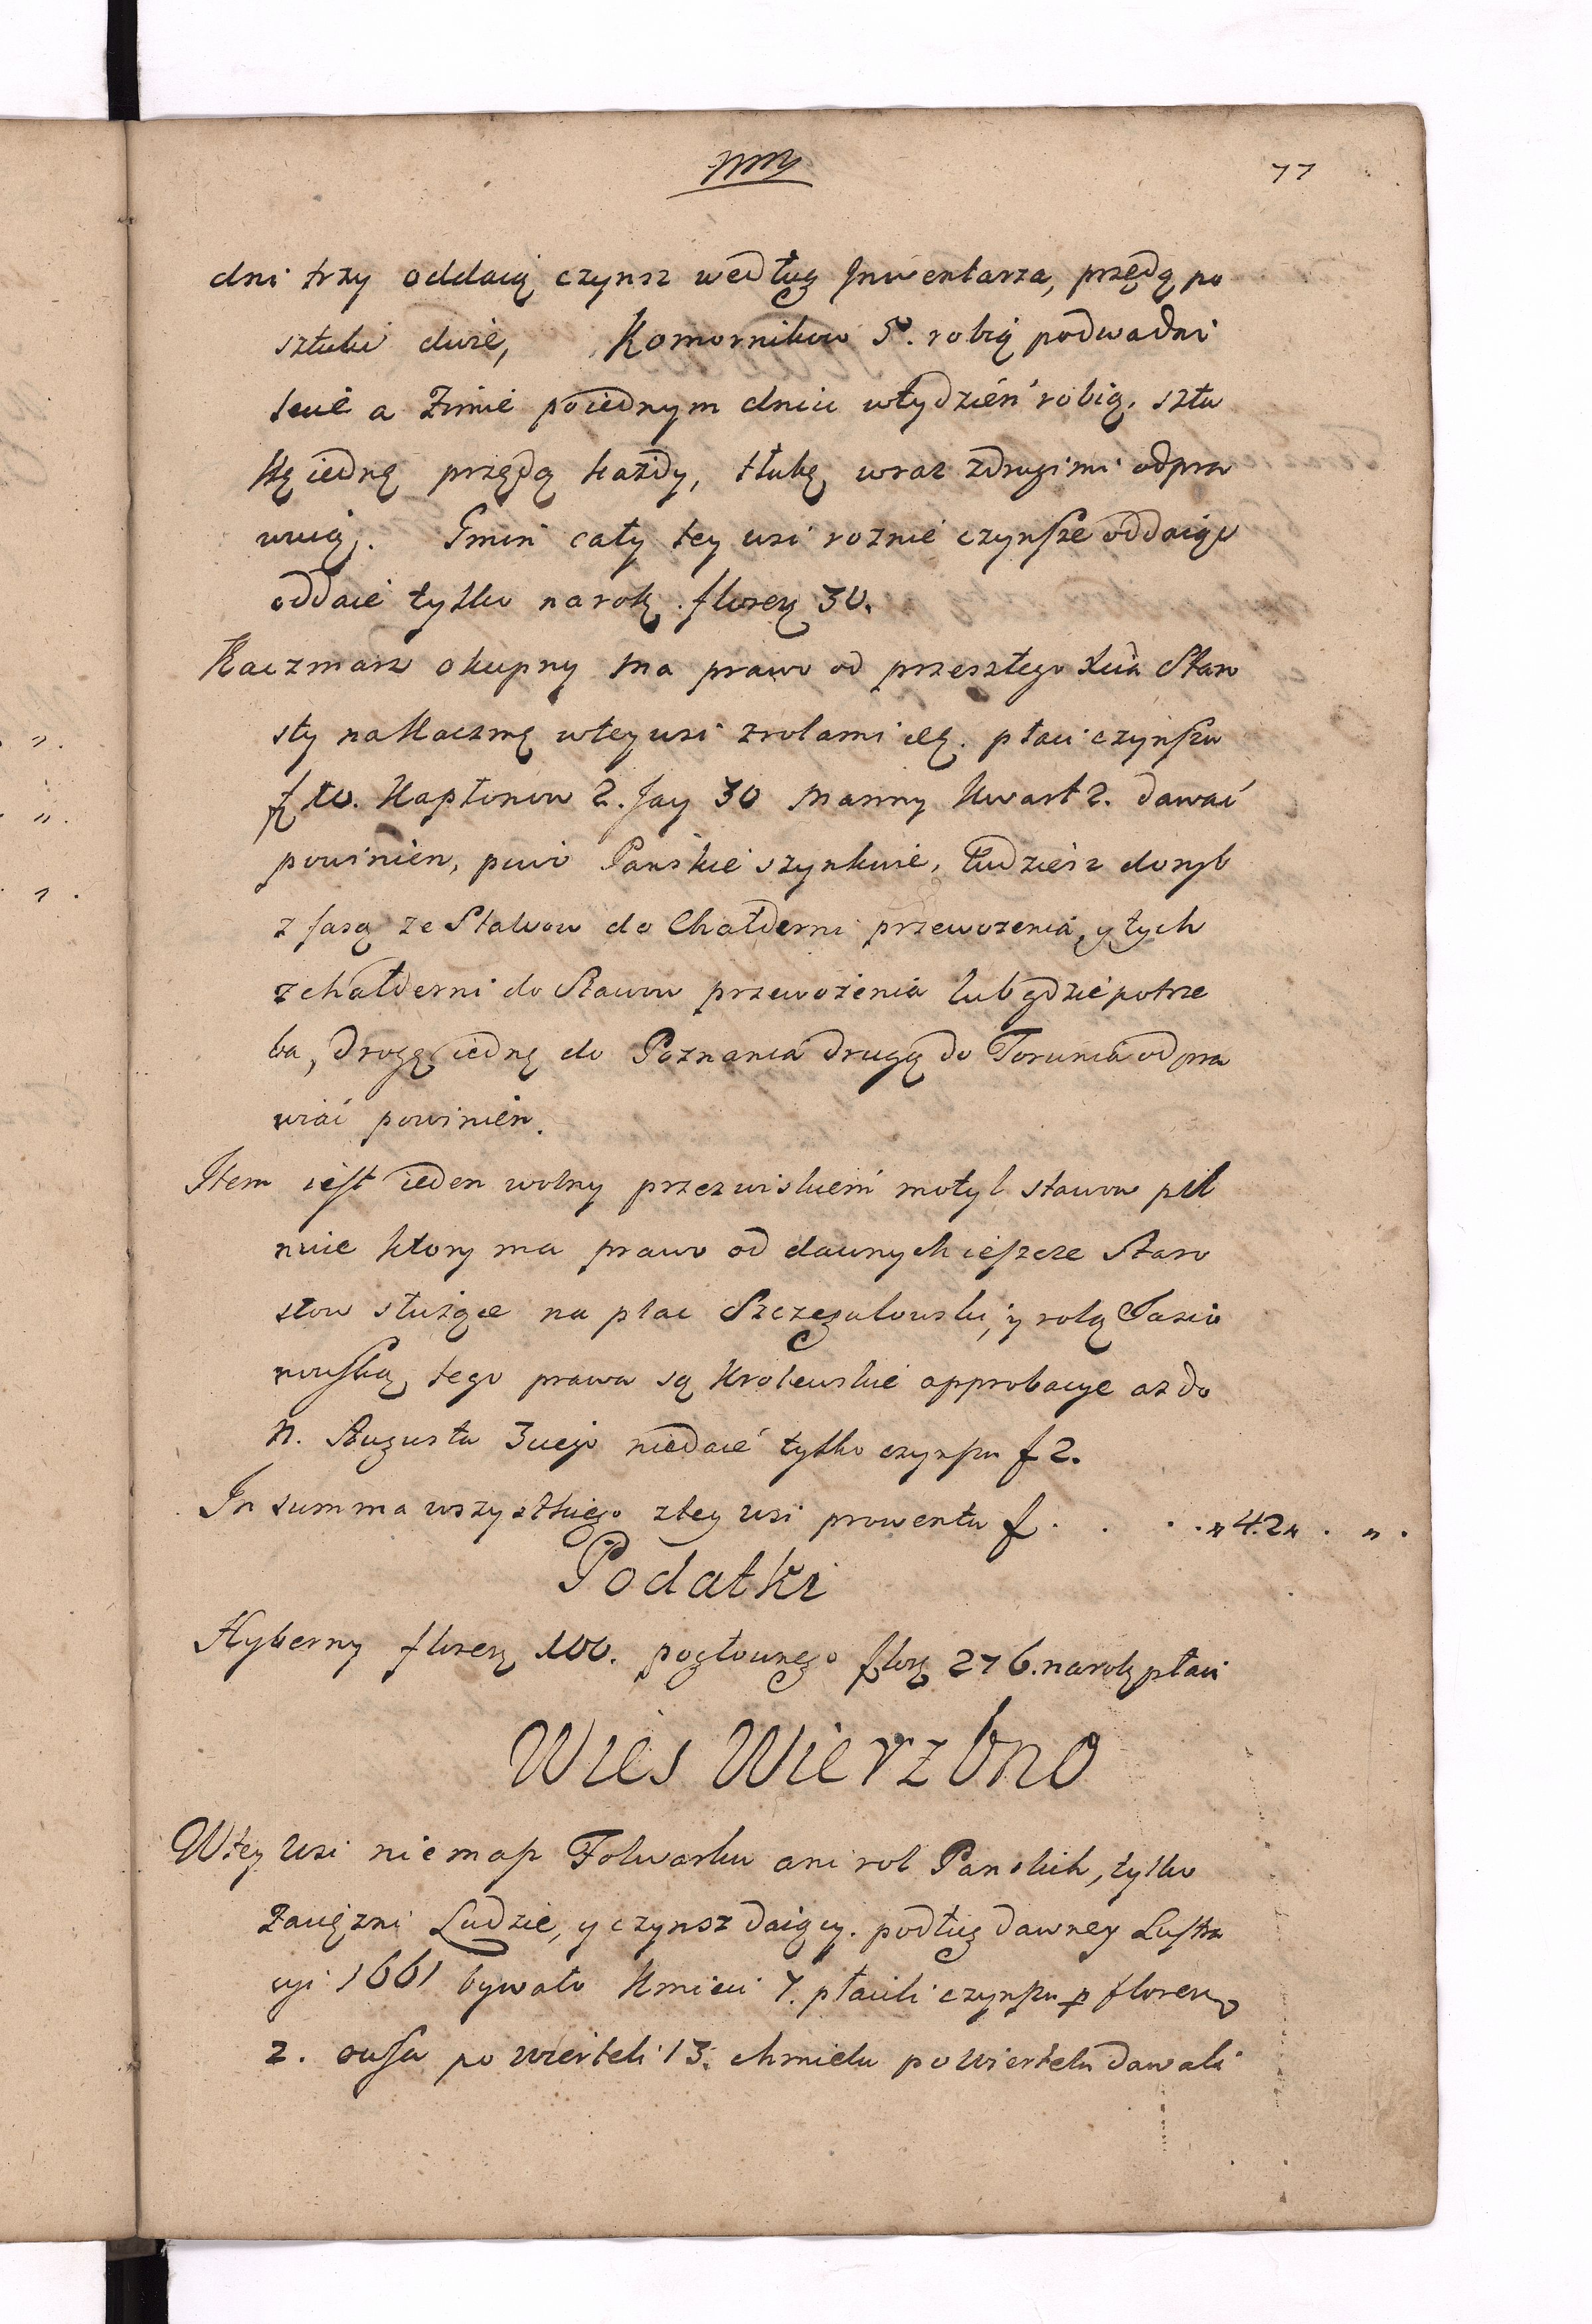 77
dni trzy oddaią czynsz według Inwentarza, przędą po
sztuki dwie, Komornikow 5. robią podwadni
lecie a Zimie poiednym dniu wtydzień robią, sztu
kę iednę przędą każdy, tłukę wraz zdrugimi odpra
wuią. Gmin cały tey wsi roznie czynsze oddaiąc
oddaie tylko narok florex 30.
Kaczmarz okupny ma prawo od przeszłego Xcia Staro
sty naKaczmę wtey wsi zrolami etc. płaci czynszu
f 10. Kapłonow 2. Jay 30 Manny Kwart 2. dawać
powinien, piwo Panskie szynkuie, Tudziesz doryb
z Jasą ze Stawow do Chałderni przewozenia, y tych
zchałderni do Stawow przewożenia lub gdzie potrze
ba, drogę iednę do Poznania drugą do Torunia odpra
wiać powinien.
Item iest ieden wolny przezwiskiem motyl stawow pil
nuie ktory ma prawo od dawnych ieszcze Staro
stow służące na plac Szczegulowski, y rolą Jasio
nowską, tego prawa są Krolewskie approbacye aż do
N. Augusta 3ciego niedaie tylko czynszu f 2.
In summa wszystkiego ztey wsi prowentu f . . . . „ 42 „ . „ .
Podatki
Hyberny florex 100. pogłownego flor 276. narok płaci
Wies Wierzbno
Wtey Wsi niemasz Folwarku ani rol Panskich, tylko
Zaciężni Ludzie, y czynsz daiący. podług dawney Lustra
cyi 1661 bywało Kmieci 7. płacili czynszu p floreny
2. owsa po wierteli 13. chmielu po Wiertelu dawali